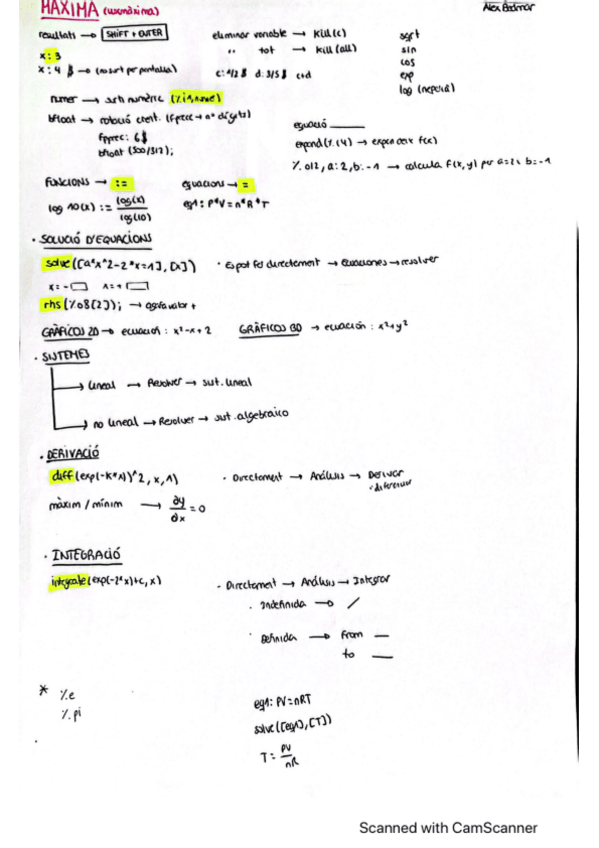 MAXIMA (wxmàxima)
Àlex
resultats → SHIFT + ENTER
eliminar variable → kill(c)
sqrt
x: 3
" tot → kill(all)
sin
x: 4 $ → (no surt per pantalla)
c: 1/2 $ d: 3/5 $ c+d
cos
exp
log (neperià)
numer → surt numèric (%i1, numer)
bfloat → notació cient. (fpprec → nº dígits)
fpprec: 6$
bfloat (500/317);
equació
expand(%i4) → expandeix f(x)
%o12, a: 2, b: -1 → calcula f(x,y) per a=2 i b=-1
FUNCIONS → :=
equacions → =
log10(x) := log(x)/log(10)
eq1: P*V = n*R*T
· SOLUCIÓ D'EQUACIONS
solve([a*x^2-2*x=1], [x])
· Es pot fer directament → ecuaciones → resolver
x = -
rhs (%o8[2]); → agafa valor +
GRÀFICOS 2D → ecuación: x²-x+2
GRÀFICOS 3D → ecuación: x²+y²
· SISTEMES
lineal → Resolver → sist. lineal
no lineal → Resolver → sist. algebraico
· DERIVACIÓ
diff (exp(-k*x))^2, x, 1)
· Directament → Análisis → Derivar
màxim / mínim → ∂y/∂x = 0
· INTEGRACIÓ
integrate (exp(-2*x)+c, x)
· Directament → Análisis → Integrar
· Indefinida → /
· Definida → from —
to —
* %e
%pi
eq1: PV=nRT
solve([eq1], [T])
T = PV/nR
Scanned with CamScanner